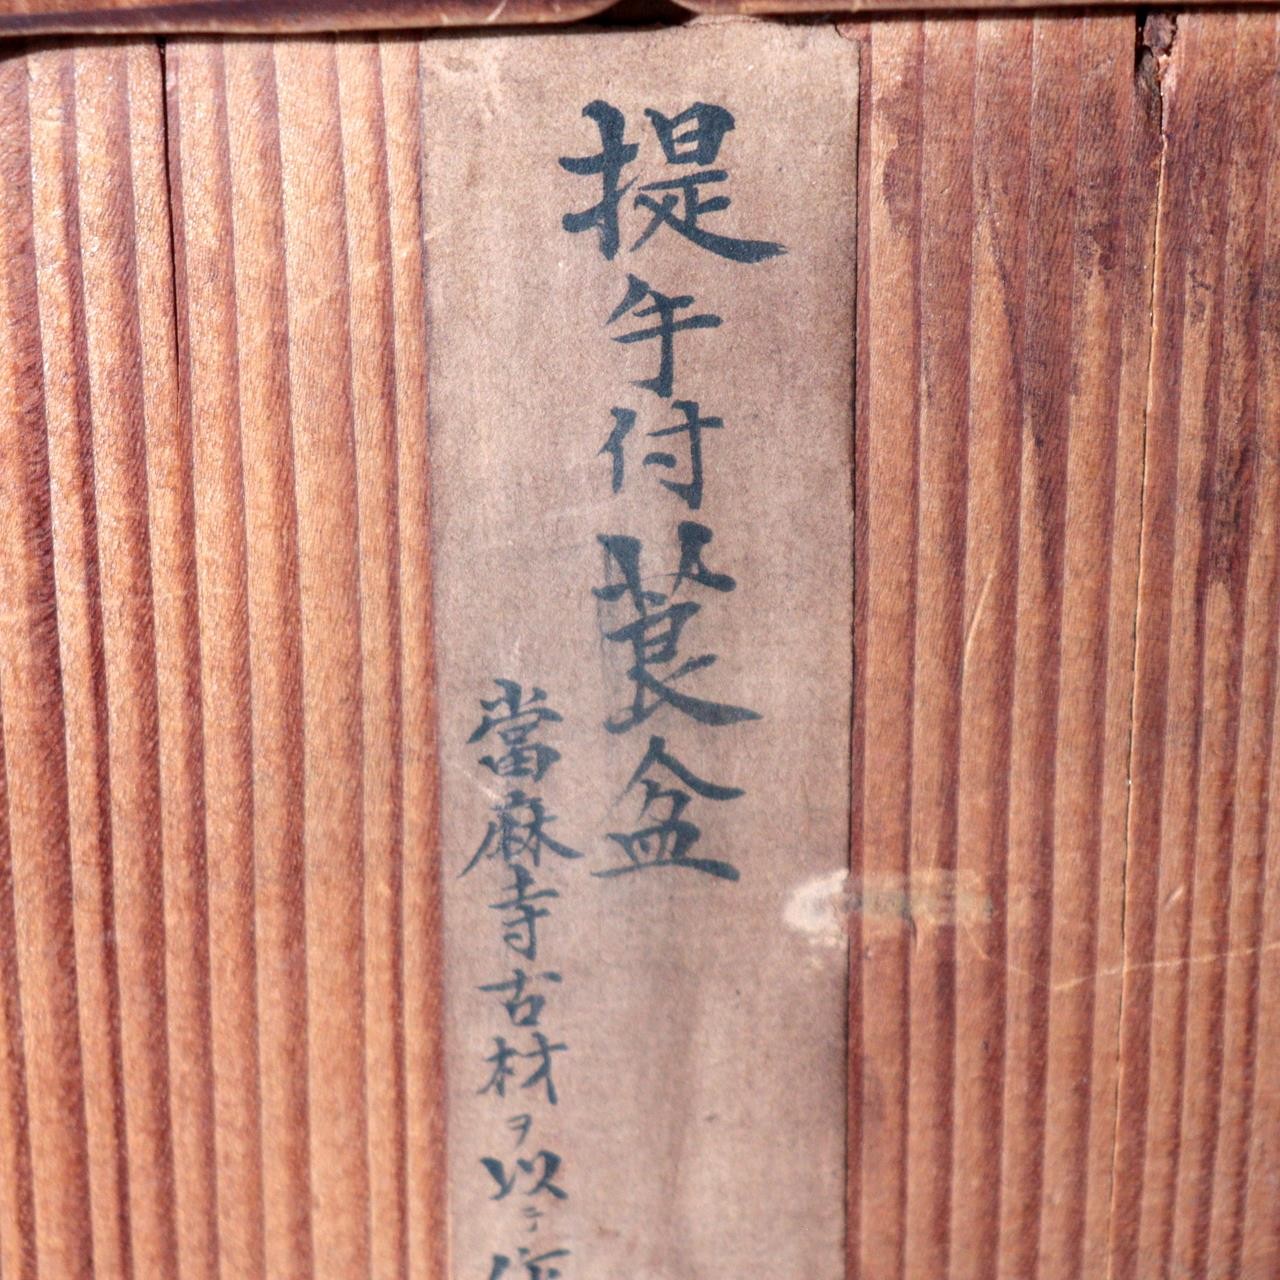 提手付莨盆
當麻寺古材ヲ以テ作